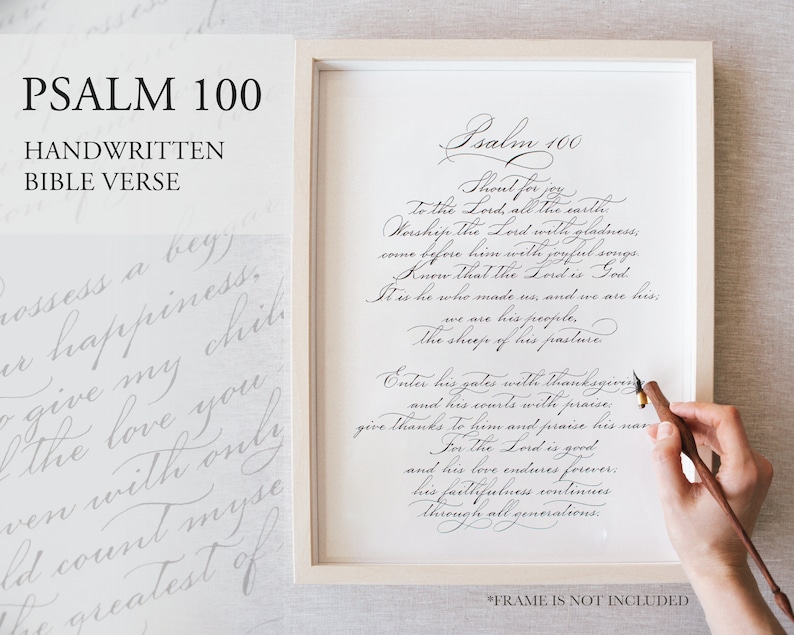 PSALM 100
HANDWRITTEN
BIBLE VERSE
Psalm 100
Shout for joy
to the Lord, all the earth.
Worship the Lord with gladness;
come before him with joyful songs.
Know that the Lord is God.
It is he who made us, and we are his;
we are his people,
the sheep of his pasture.
Enter his gates with thanksgiving
and his courts with praise;
give thanks to him and praise his nam
For the Lord is good
and his love endures forever;
his faithfulness continues
through all generations.
*FRAME IS NOT INCLUDED
possess a beggar
ur happiness,
give my chil
f the love you
ven with only
ld count myse
the greatest of